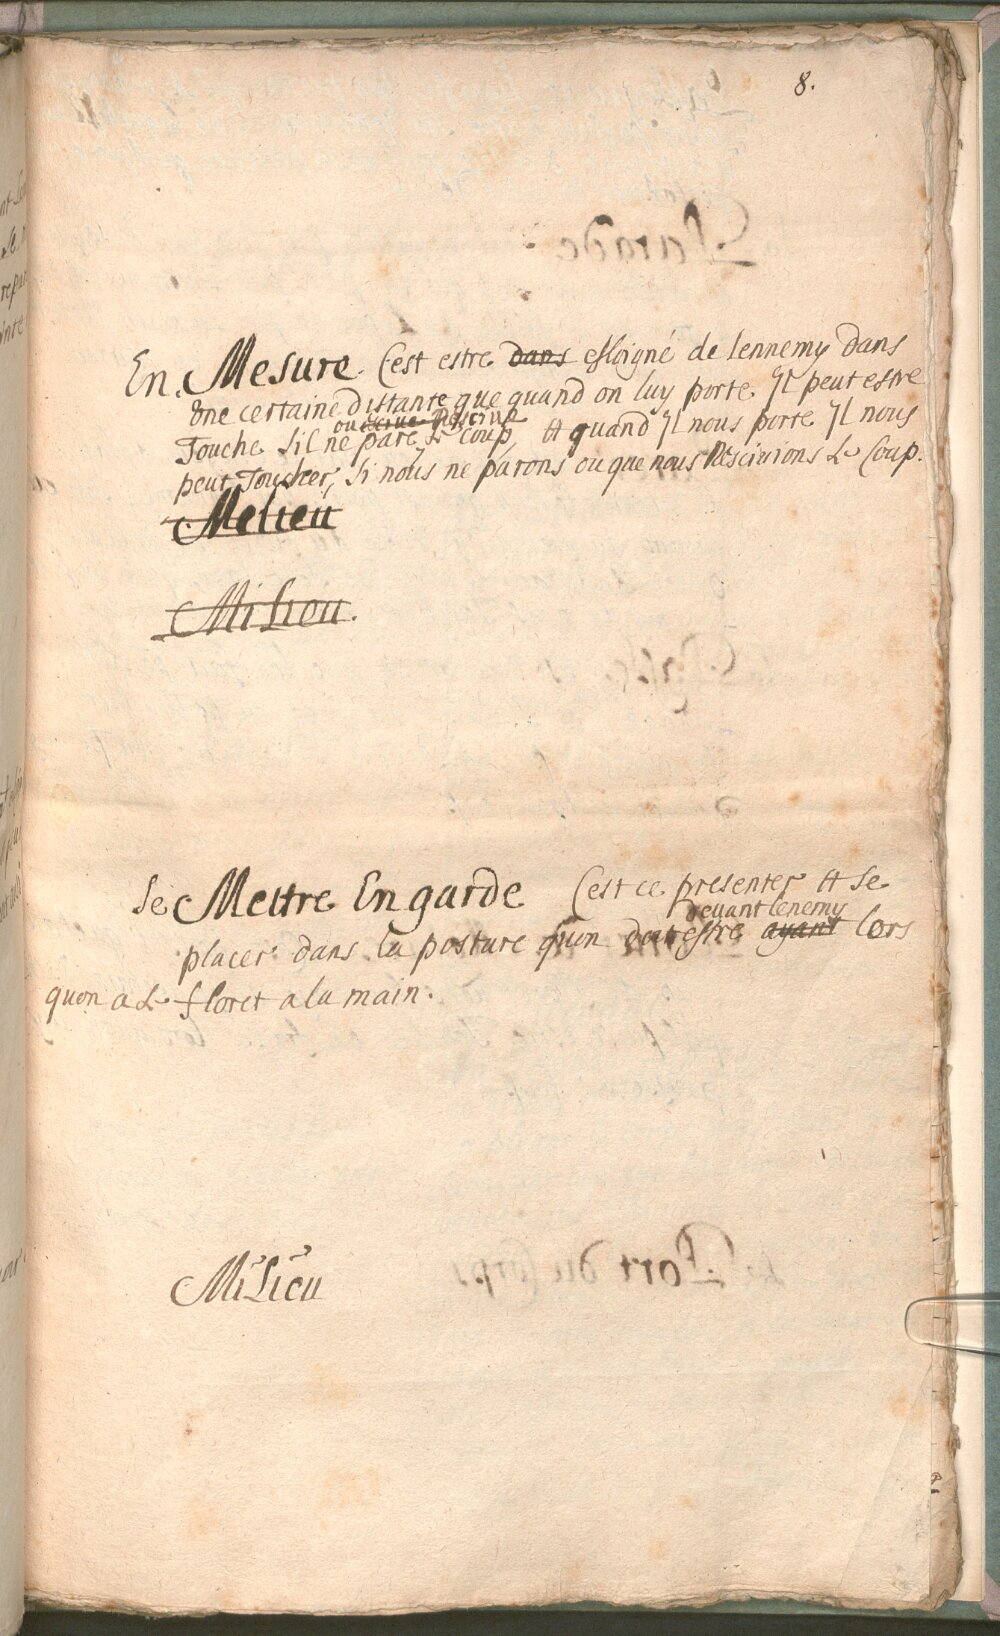 8.
En Mesure C'est estre dans esloigné de lennemy dans
une certaine distante que quand on luy porte Jl peut estre
ou
Touche sil ne pare Le Coup, et quand Jl nous porte Jl nous
peut Toucher, si nous ne parons ou que nous Le Coup.
Melieu
Milieu.
se Mettre En garde C'est ce presenter et se
devant lenemy
placer dans la posture quon doit estre ayant lors
quon a Le floret a la main.
Milieu